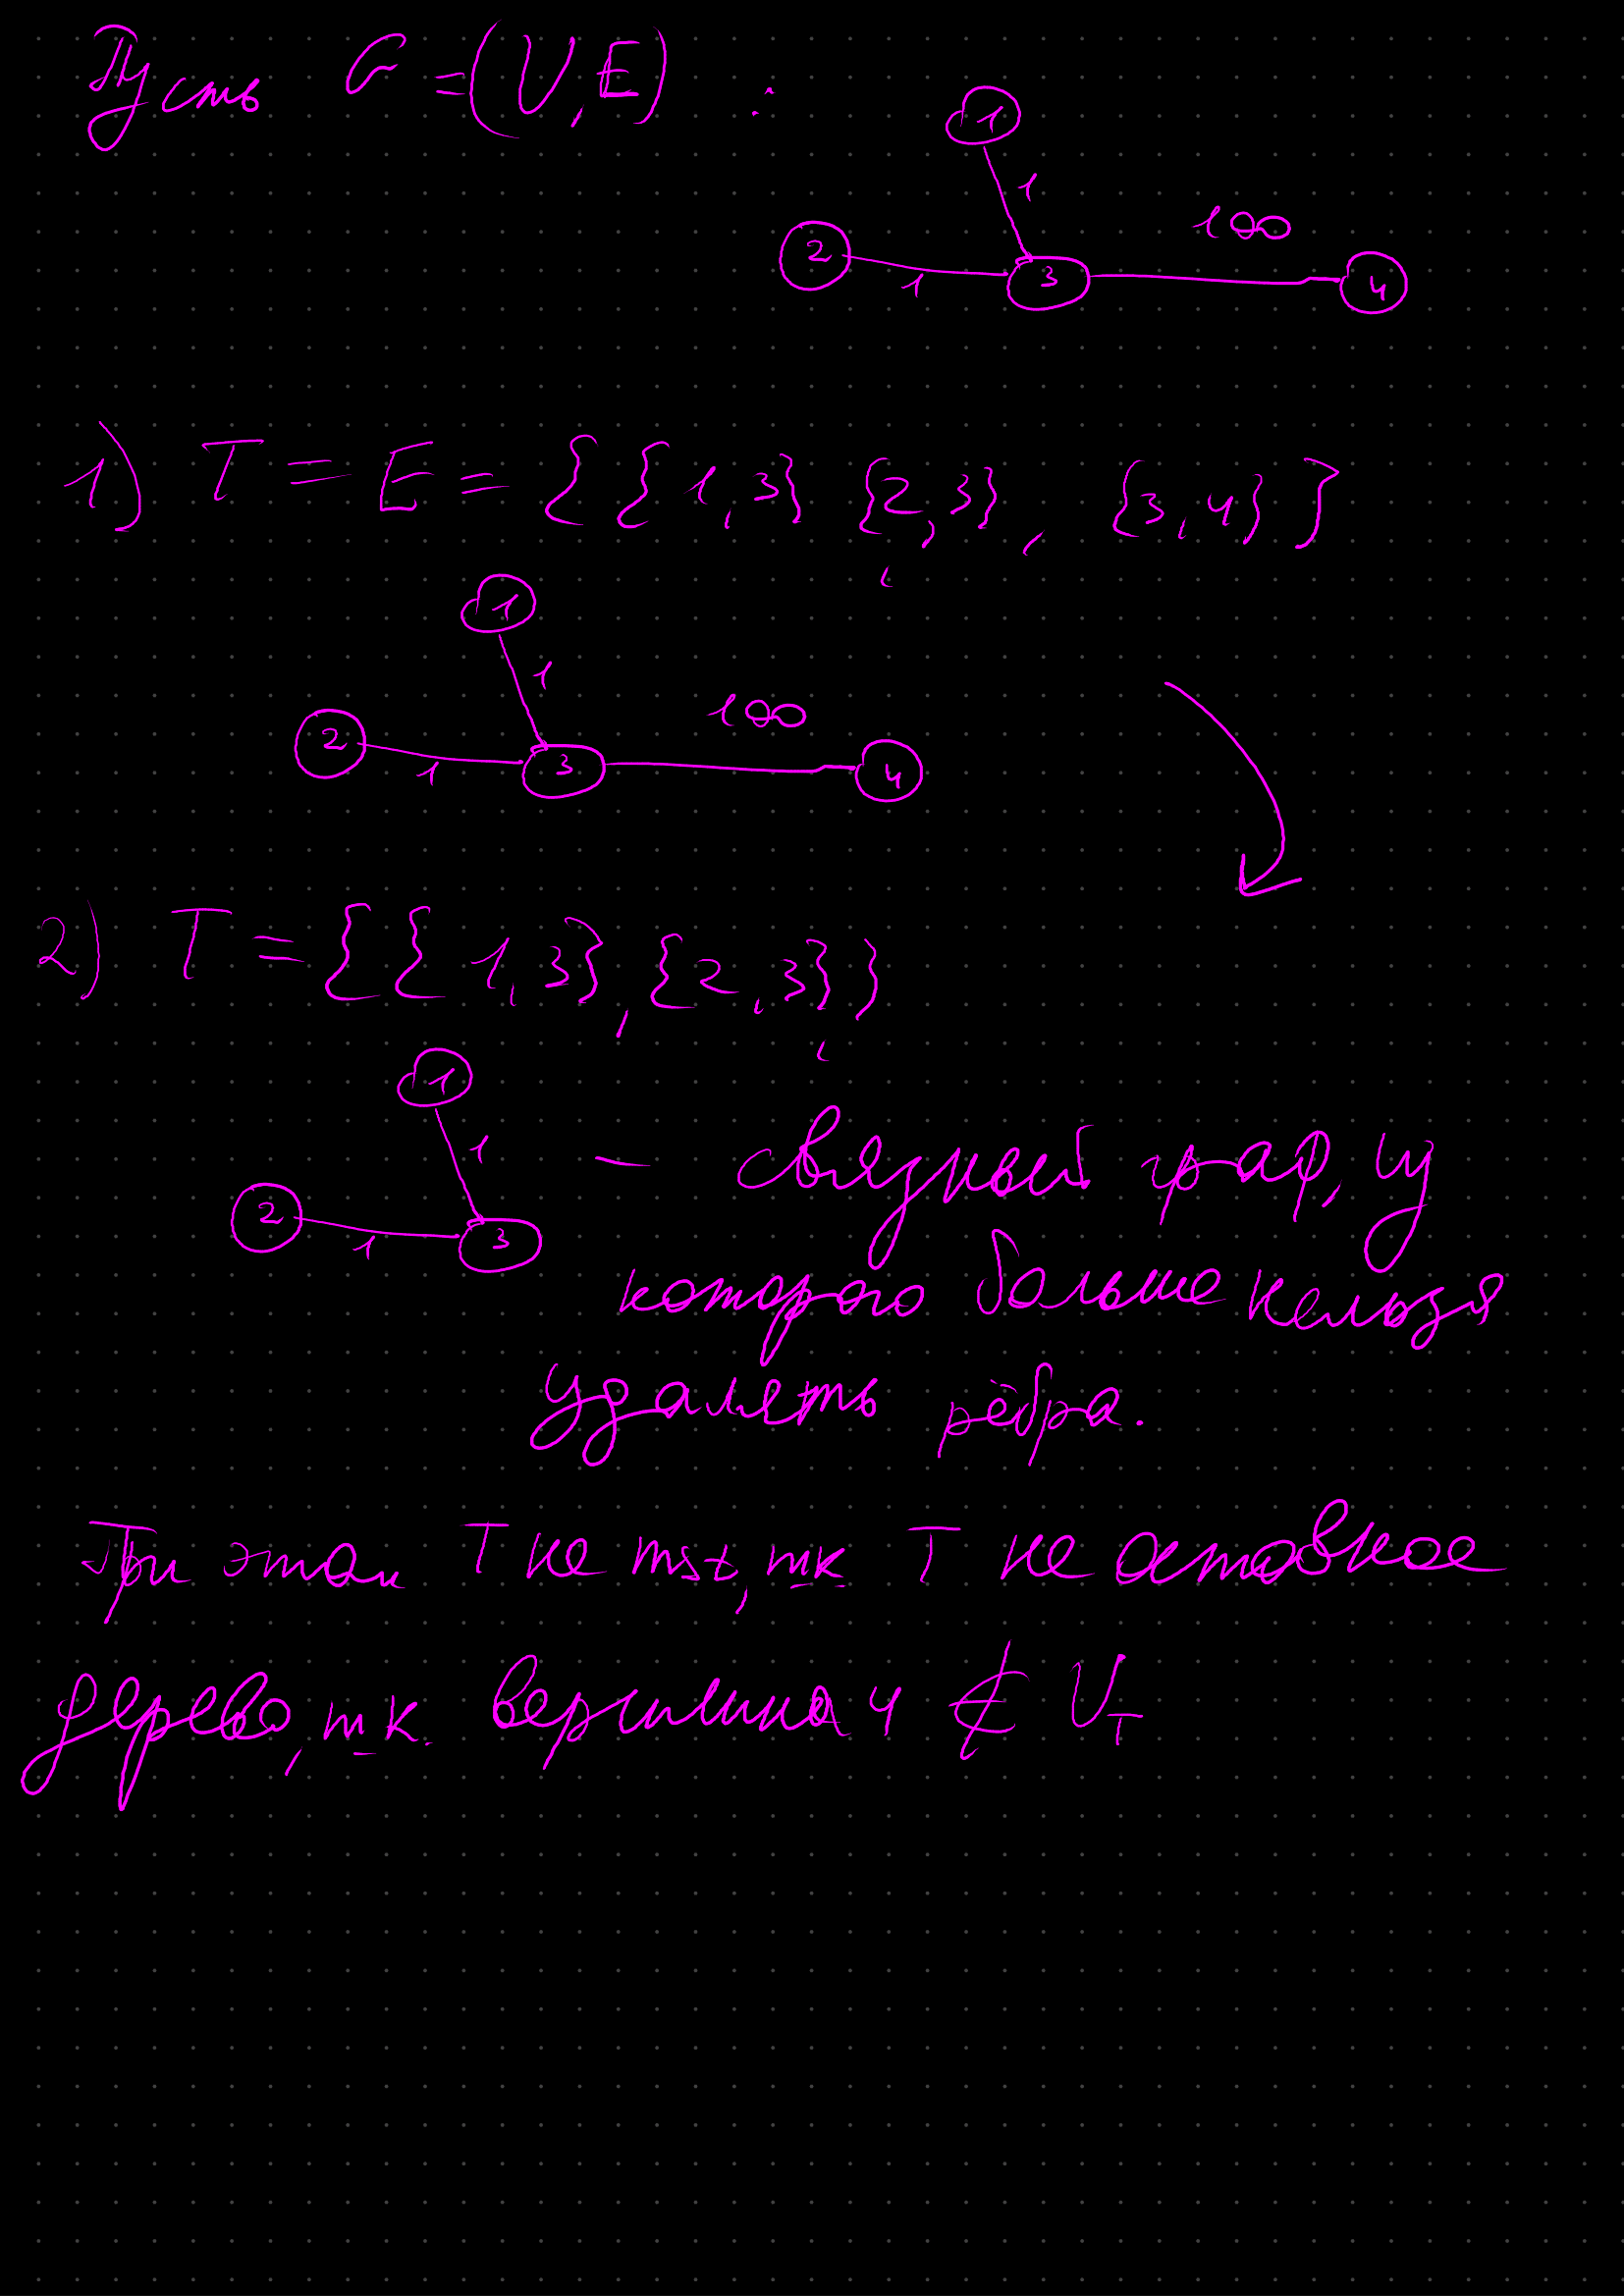 Пусть G = (V, E) :
1
1
2
1
3
100
4
1) T = E = {{1,3}, {2,3}, {3,4}}
1
1
2
1
3
100
4
2) T = {{1,3}, {2,3}}
1
1
2
1
3
— связный граф, из
которого больше нельзя
удалять рёбра.
При этом T не mst, т.к T не остовное
дерево, т.к. вершина 4 ∉ V_T